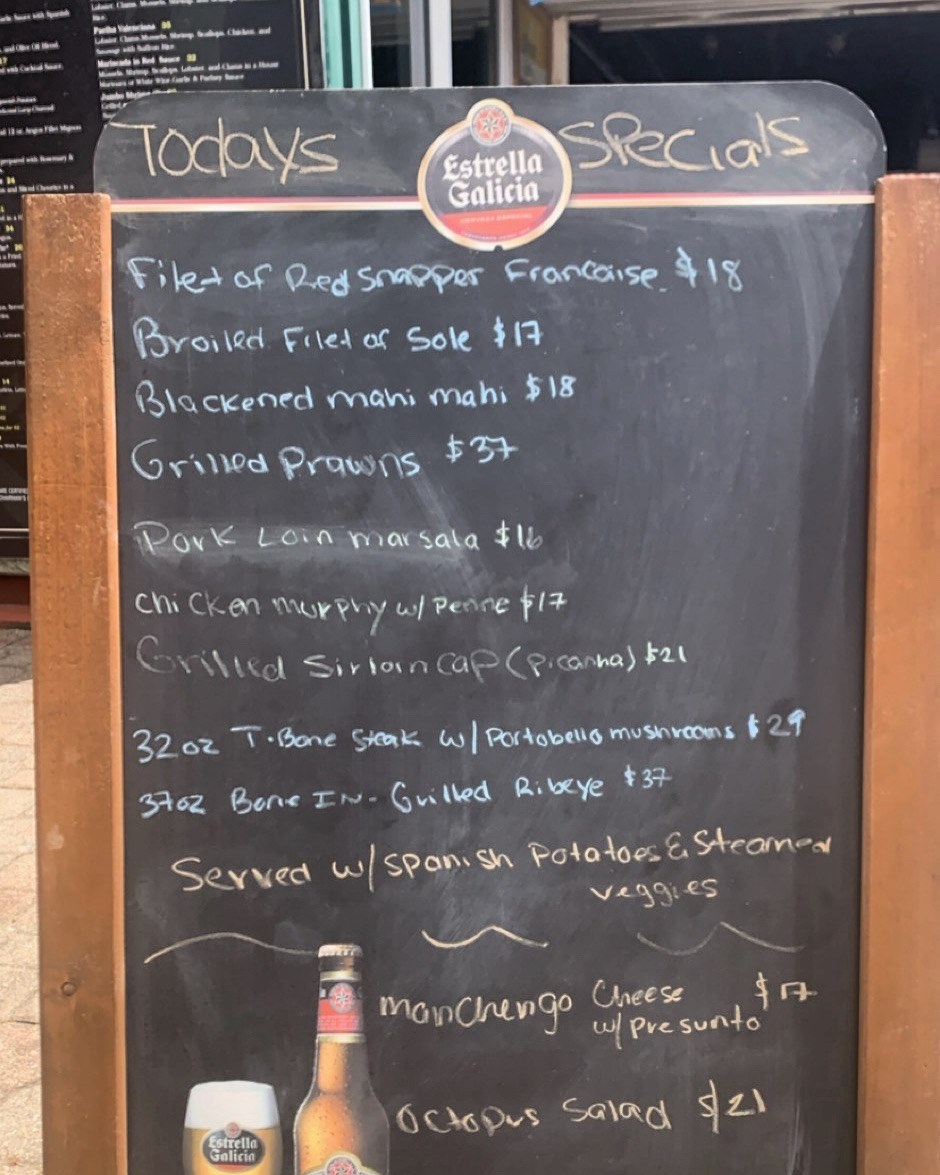 Paella Valenciana
Lobster, Clams, Mussels, Shrimp, Scallops, Chicken, and
Sausage with Saffron Rice
Mariscada in Red Sauce 32
Mussels, Shrimp, Scallops, Lobster, and Clams in a House
Marinara or White Wine Garlic & Parsley Sauce
Todays Specials
Estrella
Galicia
Filet of Red Snapper Francaise $18
Broiled Filet of Sole $17
Blackened mahi mahi $18
Grilled Prawns $37
Pork Loin marsala $16
chicken murphy w/ Penne $17
Grilled Sirloin cap (picanha) $21
32oz T-Bone Steak w/ Portobello mushrooms $29
37oz Bone IN- Grilled Ribeye $37
Served w/ Spanish Potatoes & Steamed
veggies
manchengo Cheese $17
w/ presunto
Octopus Salad $21
Estrella
Galicia